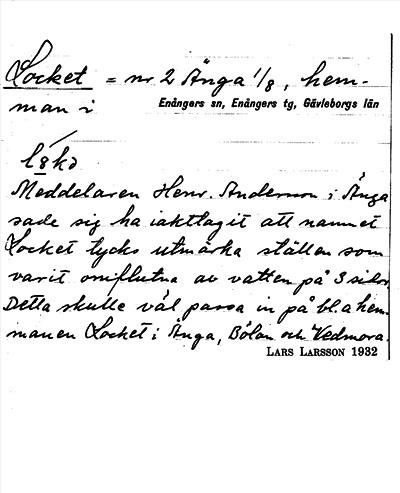 Locket = nr 2 Änga 1/8, hem-
man i Enångers sn, Enångers tg, Gävleborgs län
Meddelaren Henr. Andersson i Änga
sade sig ha iakttagit att namnet
Locket tycks utmärka ställen som
varit omflutna av vatten på 3 sidor.
Detta skulle väl passa in på bl.a hem-
manen Locket i Änga, Bölan och Vedmora.
LARS LARSSON 1932